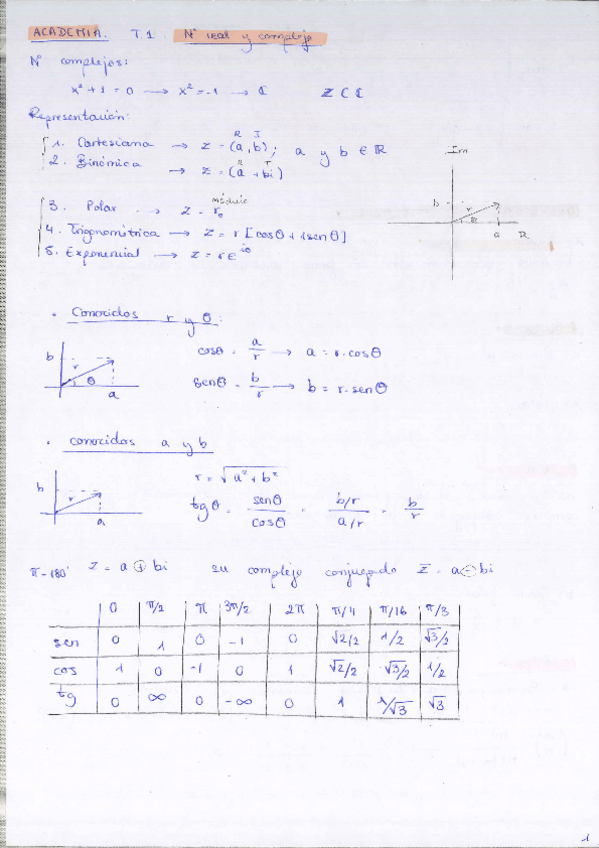 ACADEMIA. T.1 Nº real y complejo
Nº complejos:
x² + 1 = 0 → x² = -1 → ℂ ℤ ⊂ ℂ
Representación:
1. Cartesiana → z = (a, b); a y b ∈ ℝ
R I
2. Binómica → z = (a + bi)
R I
3. Polar → z = r_θ
módulo
4. Trigonométrica → z = r [cosθ + i senθ]
5. Exponencial → z = re^iθ
Im
b
r
θ
a R
• Conocidos r y θ:
b r θ a
cosθ = a/r → a = r·cosθ
senθ = b/r → b = r·senθ
• conocidas a y b
b r a
r = √a² + b²
tgθ = senθ/cosθ = b/r / a/r = b/r
π - 180º z = a + bi su complejo conjugado z̅ = a - bi
0 π/2 π 3π/2 2π π/4 π/16 π/3
sen 0 1 0 -1 0 √2/2 1/2 √3/2
cos 1 0 -1 0 1 √2/2 √3/2 1/2
tg 0 ∞ 0 -∞ 0 1 1/√3 √3
1